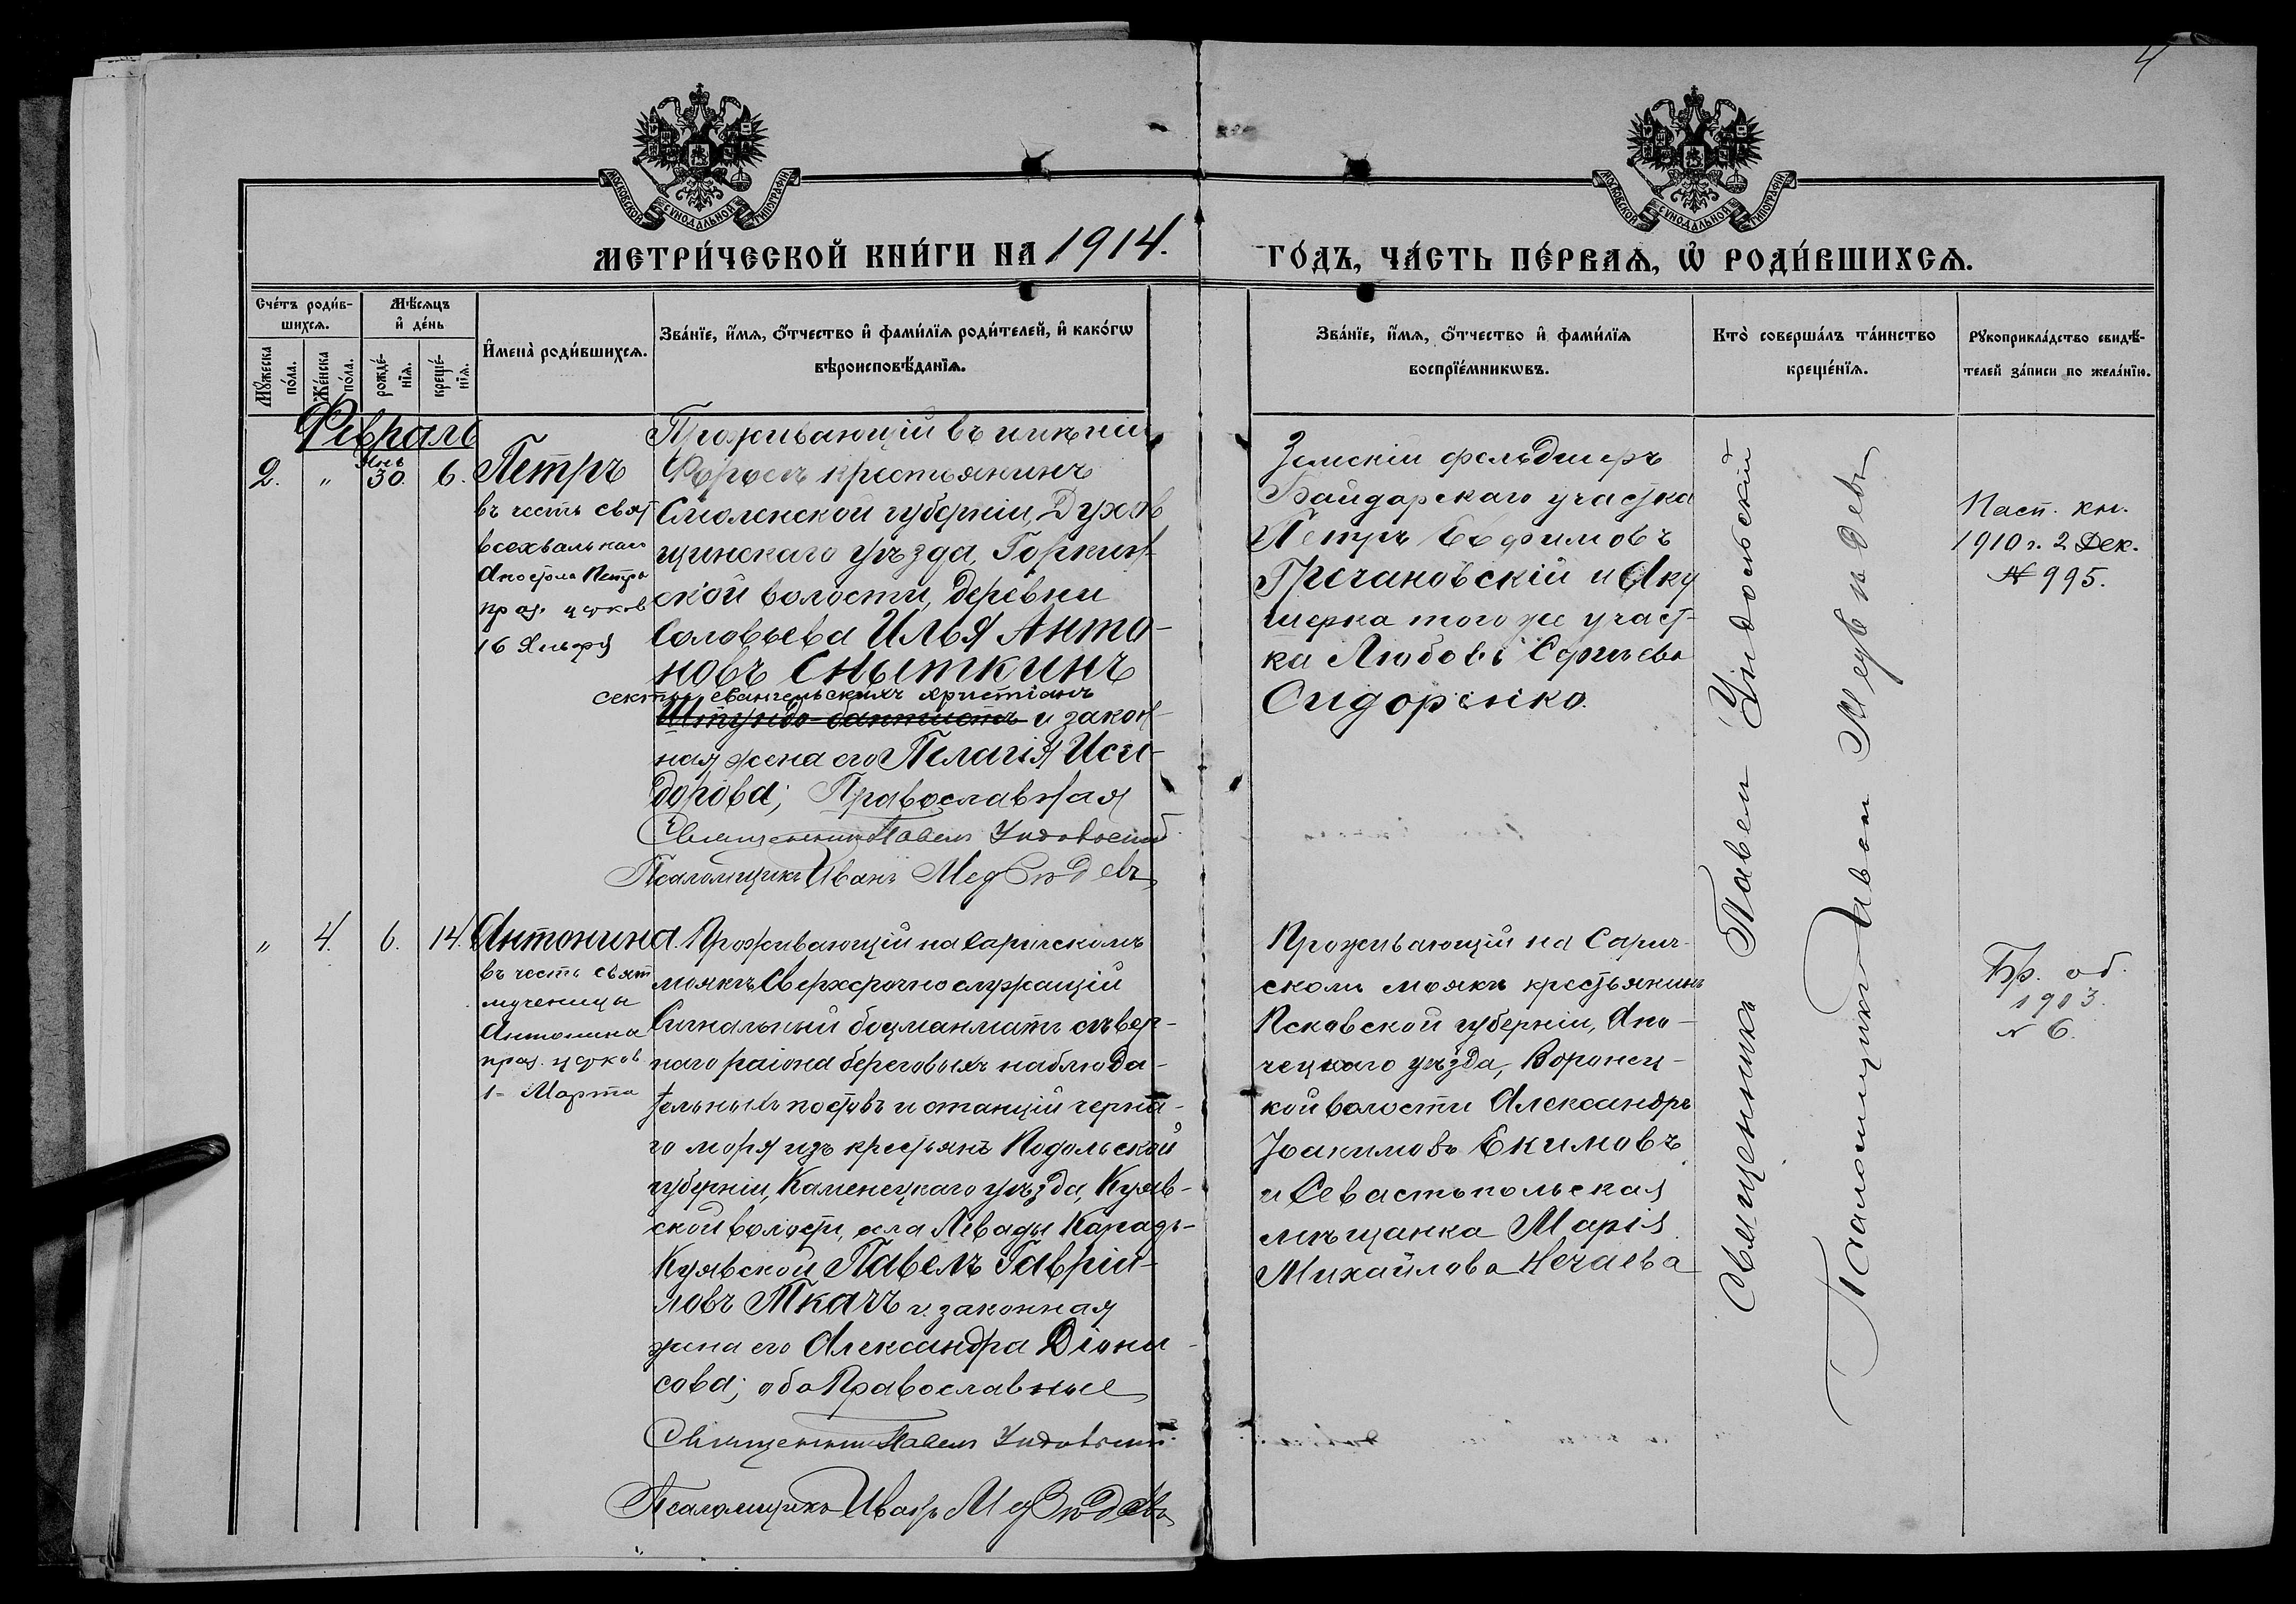 4
МОСКОВСКОЙ СѴНОДАЛЬНОЙ ТИПОГРАФІИ
МОСКОВСКОЙ СѴНОДАЛЬНОЙ ТИПОГРАФІИ
МЕТРИ́ЧЕСКОЙ КНИ́ГИ НА 1914.
ГО́ДЪ, ЧА́СТЬ ПЕ́РВАѦ, Ѡ҆ РОДИ́ВШИХСѦ.
Сче́тъ роди́в-
шихсѧ.
Мꙋ́жеска
по́ла.
Же́нска
по́ла.
Мѣ́сѧцъ
и҆ де́нь
рожде́-
нїѧ.
креще́-
нїѧ.
И҆мена̀ роди́вшихсѧ.
Зва́нїе, и҆́мѧ, ѻ҆́тчество и҆ фами́лїѧ роди́телей, и҆ како́гѡ
вѣроисповѣ́данїѧ.
Зва́нїе, и҆́мѧ, ѻ҆́тчество и҆ фами́лїѧ
воспрїе́мникѡвъ.
Кто̀ соверша́лъ та́инство
креще́нїѧ.
Рꙋкоприкла́дство свидѣ́-
телей за́писи по жела́нїю.
Февраль
2.
"
Янв
30.
6.
Петръ
въ честь свят
всехвальнаго
Апостола Петра
праз. церков
16 Января
Проживающій въ имѣніи
Форосъ крестьянинъ
Смоленской губерніи, Духов
щинскаго уѣзда, Горкин
ской волости, деревни
Соловьева Илья Анто-
новъ Сныткинъ
секты евангельскихъ христіанъ
Штундо-баптистъ и закон-
ная жена его Пелагія Иси-
дорова; Православная
Священникъ Павелъ Ундольскій
Псаломщикъ Иванъ Медвѣдевъ
Земскій фельдшеръ
Байдарскаго участка
Петръ Евфимовъ
Гречановскій и Аку
шерка того же участ-
ка Любовь
Сидоренко.
Пасп. кн.
1910 г. 2 Дек.
№ 995.
"
4.
6.
14.
Антонина.
въ честь свят
мученицы
Антонина
праз. церков
1- Марта
Проживающій на Саричскомъ
маякѣ Сверхсрочнослужащій
Сигнальный боцманматъ сѣвер-
наго района береговыхъ наблюда-
тельныхъ постовъ и станцій черна-
го моря изъ крестьянъ Подольской
губерніи, Каменецкаго уѣзда, Куяв-
ской волости, села Левады
Куявской Павелъ Гавріи-
ловъ Ткачъ и законная
жена его Александра Діони-
сова; оба Православные
Священникъ Павелъ Ундольскій
Псаломщикъ Иванъ Медвѣдевъ
Проживающій на Сарич-
скомъ маякѣ крестьянинъ
Псковской губерніи, Опо-
чецкаго уѣзда, Воронец-
кой волости Александръ
Іоакимовъ Екимовъ
и Севастопольская
мѣщанка Марія
Михайлова Нечаева
Бр. об.
1903.
№ 6.
Священникъ Павелъ Ундольскій
Псаломщикъ Иванъ Медвѣдевъ